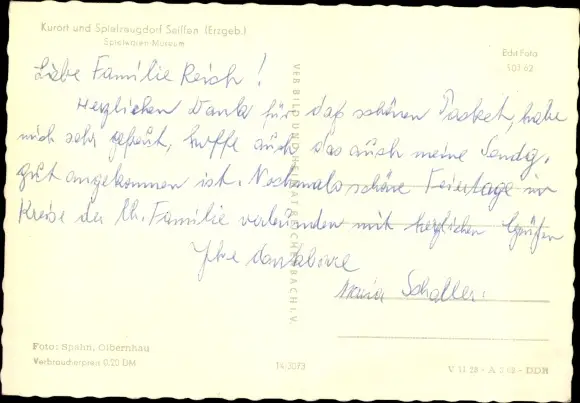 Kurort und Spielzeugdorf Seiffen (Erzgeb.)
Spielwaren-Museum
Echt Foto
Liebe Familie Reich!
Herzlichen Dank für daß schönen Packet, habe
mich sehr gefreut, hoffe auch das auch meine Sendg.
gut angekommen ist. Nochmals schöne Feiertage im
Kreise der lb. Familie verbunden mit herzlichen Grüßen
Ihre dankbare
Maria Schaller.
VEB BILD UND HEIMAT REICHENBACH I. V.
Foto: Spahn, Olbernhau
Verbraucherpreis 0,20 DM
V 11 28 - A - DDR